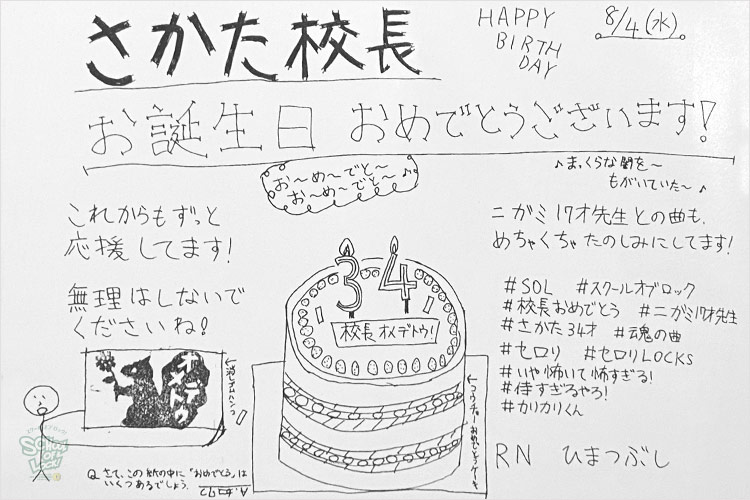 さかた校長
HAPPY
BIRTH
DAY
8/4(水)
お誕生日 おめでとうございます!
お〜め〜でと〜
お〜め〜でと〜♪
♪まっくらな闇を〜
もがいていた〜♪
これからもずっと
応援してます!
無理はしないで
くださいね!
ニガミ17才先生との曲も、
めちゃくちゃたのしみにしてます!
34
校長オメデトウ!
#SOL #スクールオブロック
#校長おめでとう #ニガミ17才先生
#さかた34才 #魂の曲
#セロリ #セロリLOCKS
#いや怖いて怖すぎる!
#侍すぎるやろ!
#カリカリくん
オメデトウ
←消しゴムハンコ
←コウチョーおめでとうケーキ
Q.さて、この紙の中に「おめでとう」は
いくつあるでしょう。
RN ひまつぶし